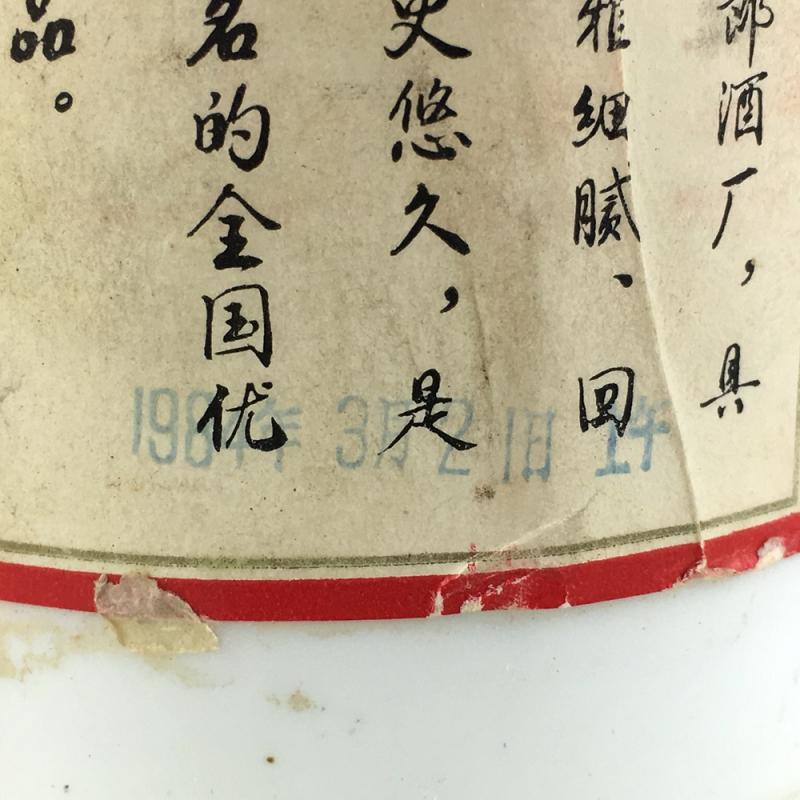 郎酒厂，具
雅细腻、回
史悠久，是
名的全国优
品。
3月21日